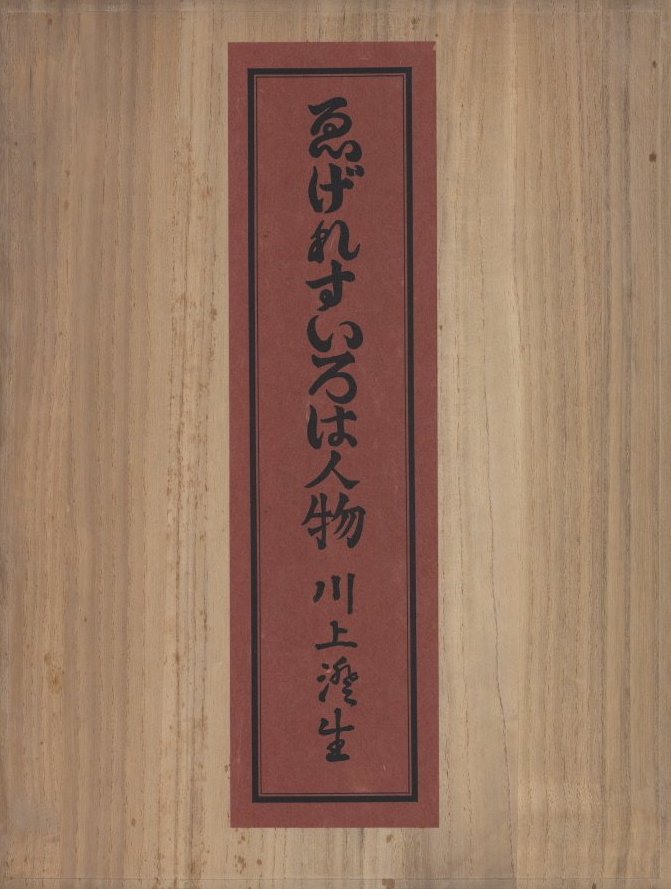 ゑげれすいろは人物 川上澄生